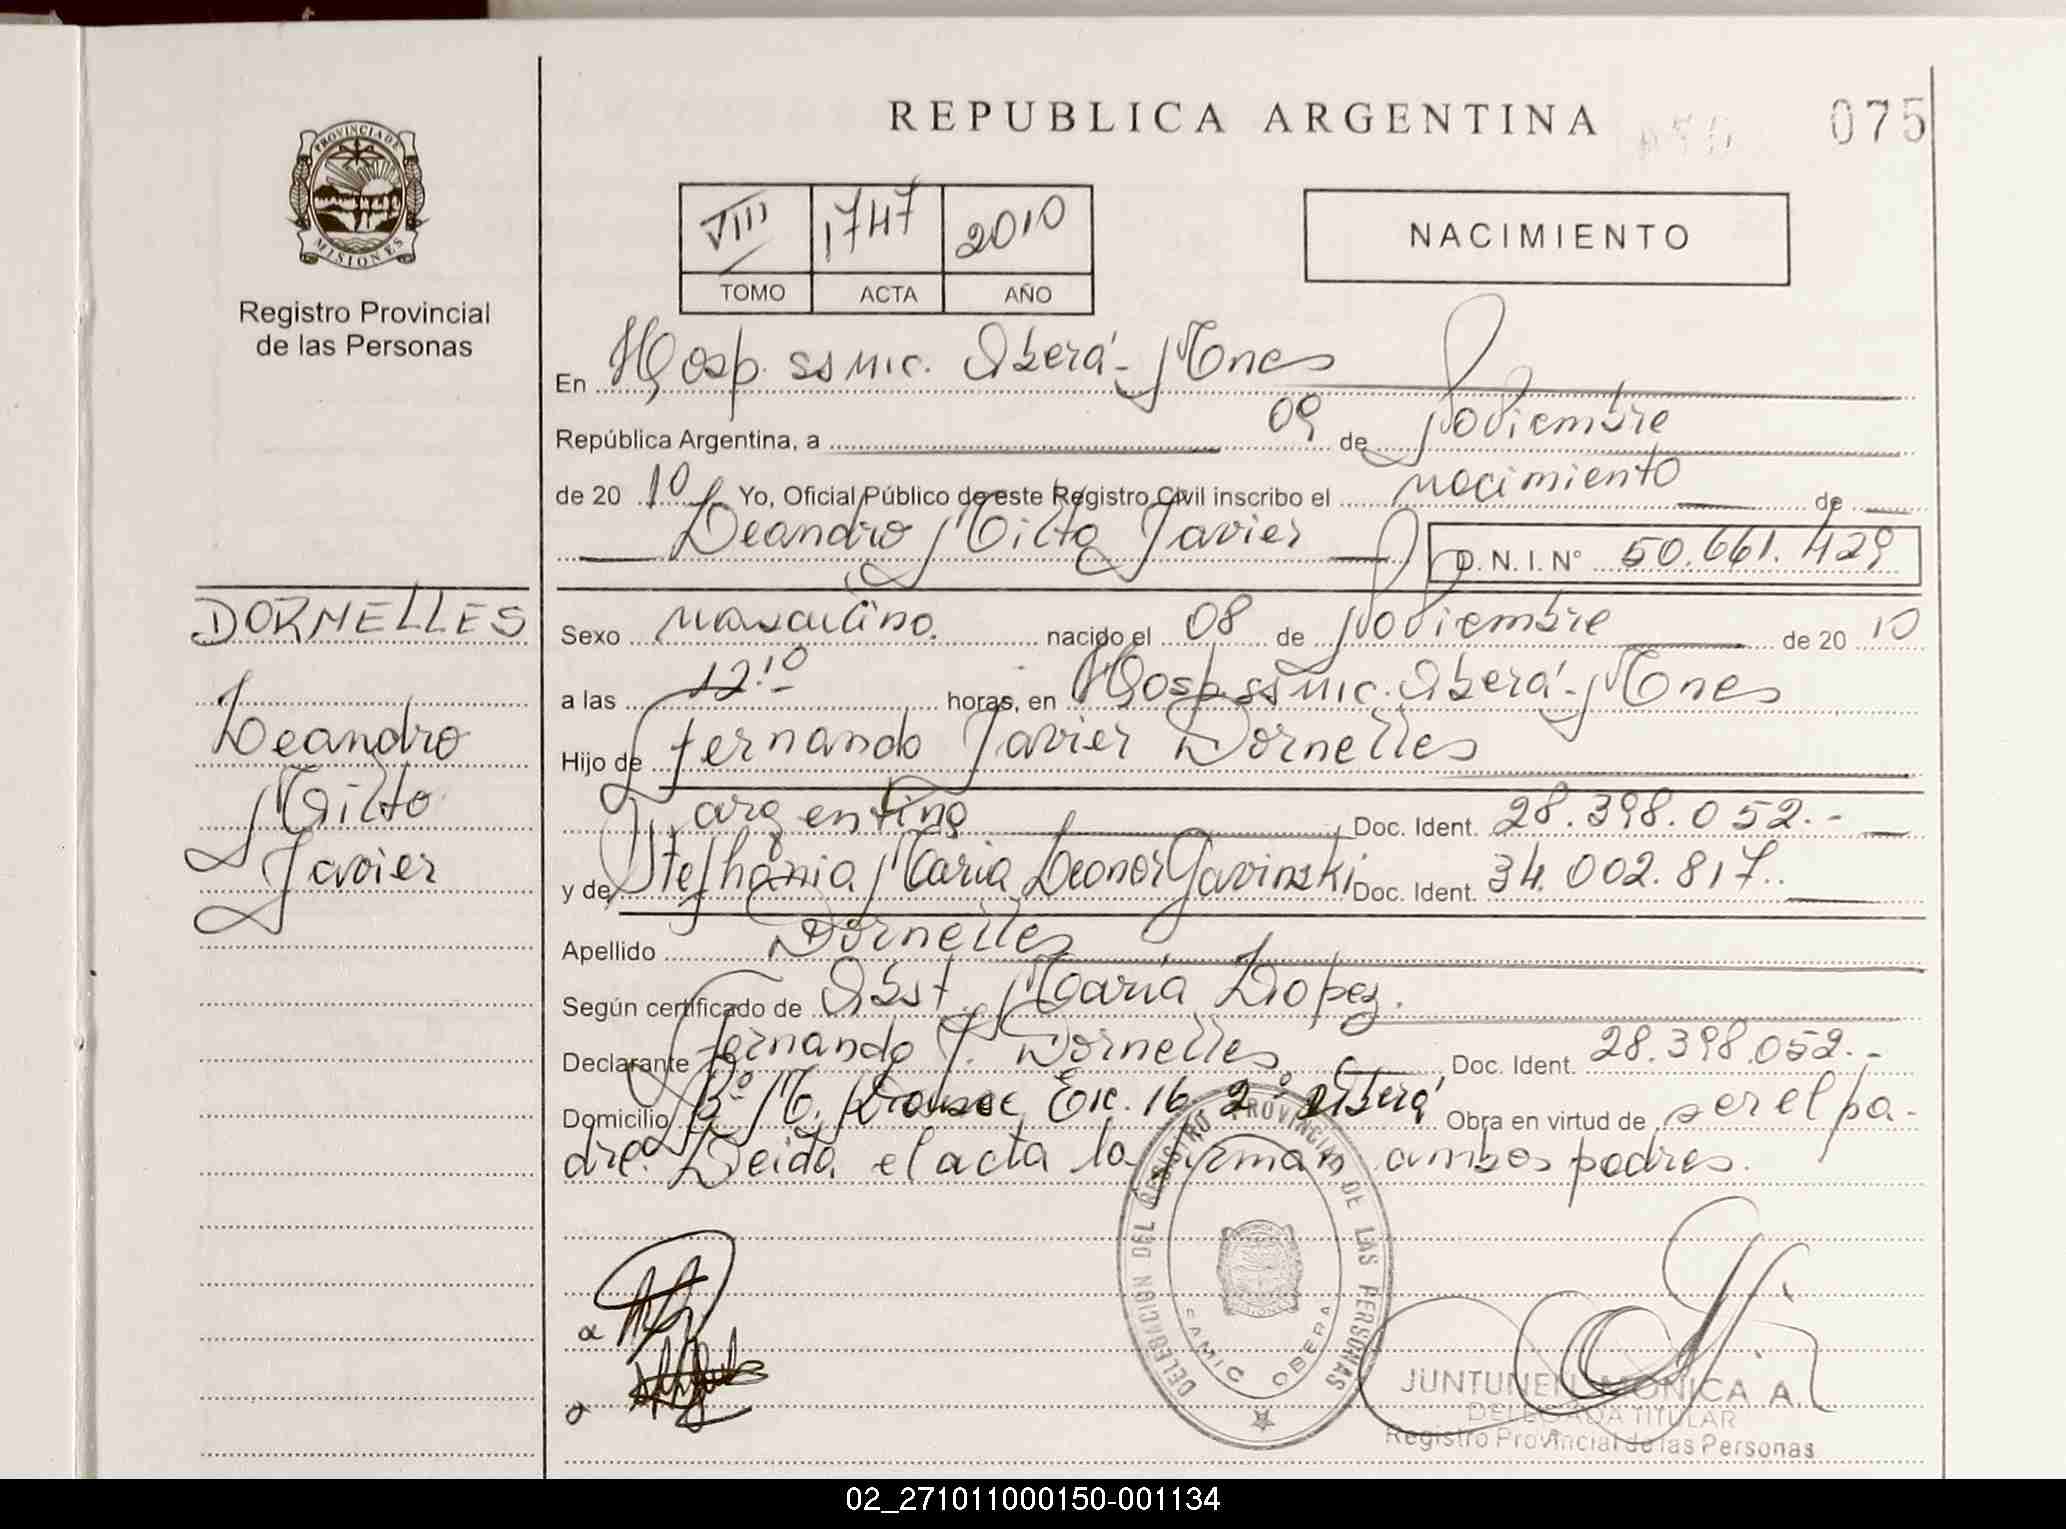 REPUBLICA ARGENTINA
075
PROVINCIA DE
MISIONES
Registro Provincial
de las Personas
VIII 1747 2010
TOMO ACTA AÑO
NACIMIENTO
En Hosp. ssmic. Oberá - Mnes
República Argentina, a 09 de Noviembre
de 20 10 Yo, Oficial Público de este Registro Civil inscribo el nacimiento de
Leandro Milto Javier D.N.I. Nº 50.661.429
DORNELLES
Leandro
Milto
Javier
Sexo masculino. nacido el 08 de Noviembre de 20 10
a las 12:10 horas, en Hosp. ssmic. Oberá - Mnes
Hijo de Fernando Javier Dornelles
argentino Doc. Ident. 28.398.052.-
y de Stefhania Maria Leonor Gavinski Doc. Ident. 34.002.817.
Apellido Dornelles
Según certificado de Obst. Maria Lopez.
Declarante Fernando J. Dornelles Doc. Ident. 28.398.052.-
Domicilio Bº M. Esc. 16 2º Oberá Obra en virtud de ser el pa-
dre. Leida el acta la firman ambos padres.
DELEGACION DEL REGISTRO PROVINCIAL DE LAS PERSONAS
SAMIC OBERA
JUNTUNEN MONICA A.
DELEGADA TITULAR
Registro Provincial de las Personas
02_271011000150-001134